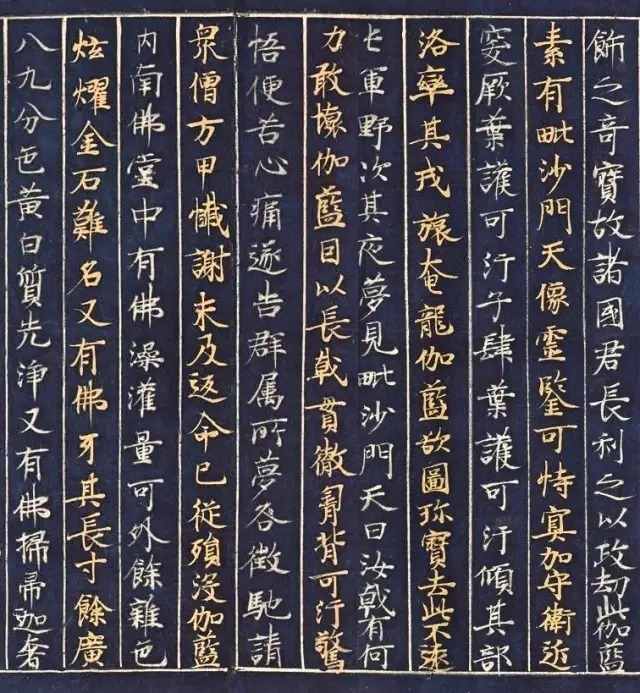 飾之奇寶故諸國君長利之以攻劫此伽藍
素有毗沙門天像靈鑒可恃冥加守衛近
突厥葉護可汗子肆葉護可汗傾其部
洛率其戎旅奄龍伽藍欲圖珎寶去此不遠
屯軍野次其夜夢見毗沙門天曰汝戟有何
力敢壞伽藍因以長戟貫徹胷背可汗驚
悟便苦心痛遂告群属所夢咎徵馳請
衆僧方甲懺謝未及返命已從殞没伽藍
内南佛堂中有佛澡灌量可外餘雜色
炫燿金石難名又有佛牙其長寸餘廣
八九分色黄白質光淨又有佛掃帚迦奢